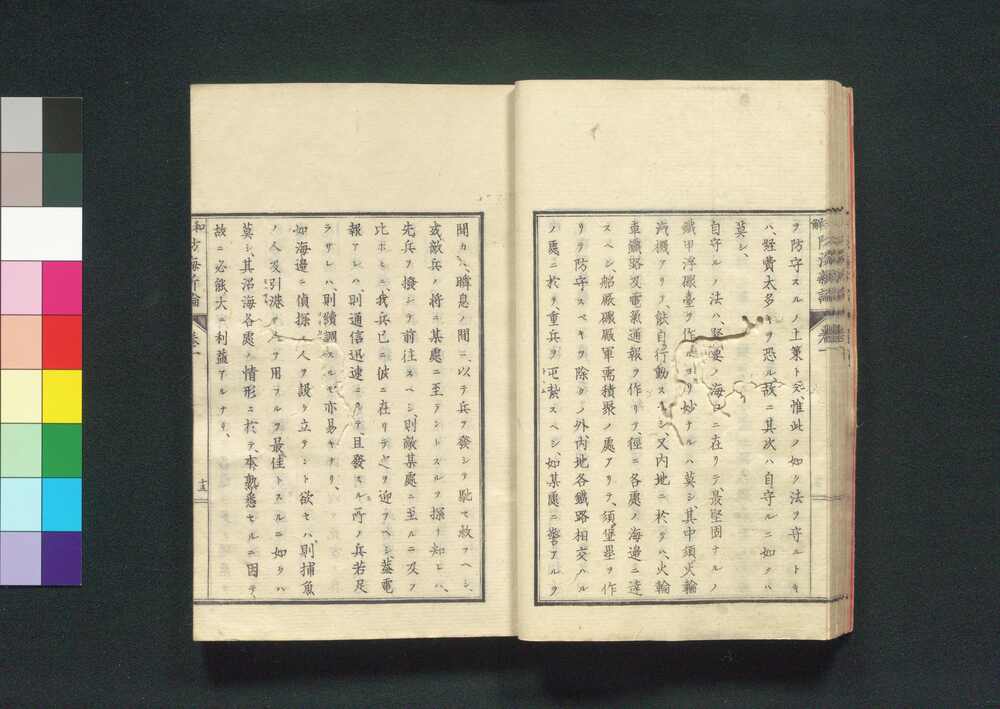 ヲ防守スルノ上策ト云、惟此ノ如ク法ヲ守ルトキ
ハ、経費太多キヲ恐ル、故ニ其次ハ自守ルニ如クハ
莫シ、
自守ルノ法ハ、堅要ノ海口ニ在リテ、最堅固ナルノ
鐵甲浮礮臺ヲ作ルヨリ妙ナルハ莫シ、其中須火輪
滊機アリテ、能自行動スヘシ、又内地ニ於テハ、火輪
車鐵路及電氣通報ヲ作リテ、徑ニ各處ノ海邊ニ達
スベシ、船厰礮厰軍需積聚ノ處アリテ、須堡壘ヲ作
リテ防守スベキヲ除クノ外、内地各鐵路相交ハル
ノ處ニ於テ重兵ヲ屯紮スベシ、如某處ニ警アルヲ
聞カハ、瞬息ノ間ニ、以テ兵ヲ發シテ馳セ救フヘシ、
或敵兵ノ將ニ某處ニ至ラントスルヲ探リ知ヒハ、
先兵ヲ撥シテ前往スベシ、則敵某處ニ至ルニ及フ
比ホヒニ、我兵已ニ彼ニ在リテ之ヲ迎フベシ、蓋電
報アレハ、則通信迅速ニシテ、且發スル所ノ兵若足
ラサレハ、則續調スルモ亦易キナリ、
如海邊ニ偵探ノ人ヲ設ケ立テント欲セハ、則捕魚
ノ人及引港ノ人ヲ用フルヲ最佳トスルニ如クハ
莫シ、其沿海各處ノ情形ニ於テ、本熟悉セルニ因テ、
故ニ必能大ニ利益アルナリ、
和防海新論 卷一 十五